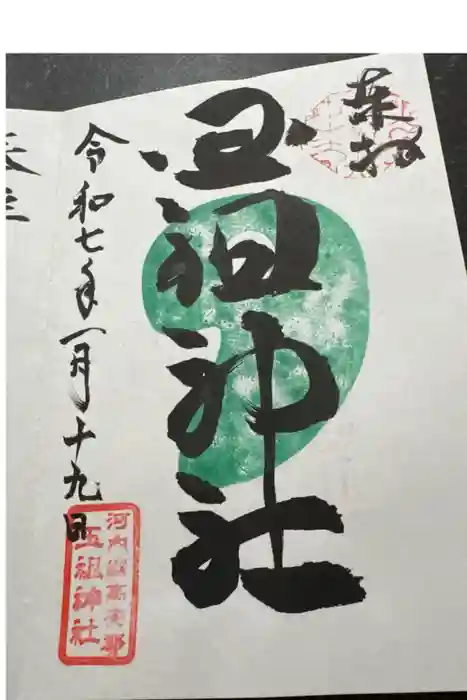 奉拝
玉祖神社
令和七年一月十九日
河内国高安郡
玉祖神社